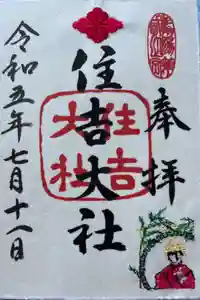 奉拝
住吉大社
住吉
大社
令和五年七月十一日